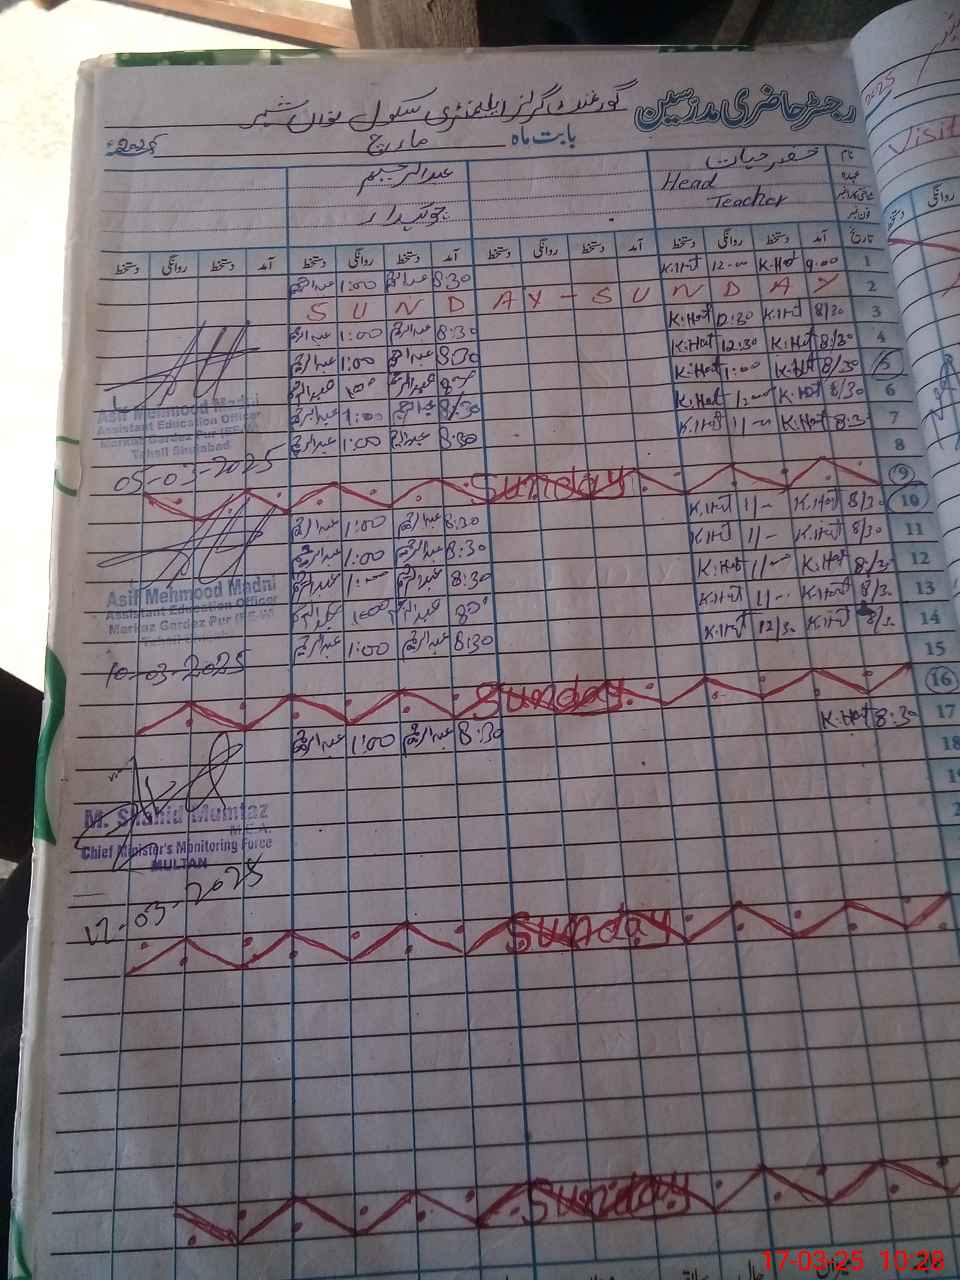 رجسٹر حاضری مدرسین گورنمنٹ گرلز ایلیمنٹری سکول نواں شہر
بابت ماہ مارچ 2025ء
نام خضر حیات عبدالرحیم
عہدہ Head Teacher چوکیدار
تاریخ آمد دستخط روانگی دستخط آمد دستخط روانگی دستخط آمد دستخط روانگی دستخط آمد دستخط روانگی دستخط
1 9:00 K.Hat 12:00 K.Hat 8:30 1:00
2 SUNDAY - SUNDAY
3 8/30 K.Hat 12:30 K.Hat 8:30 1:00
4 8/30 K.Hat 12:30 K.Hat 8:30 1:00
5 8/30 K.Hat 1:00 K.Hat
6 8/30 K.Hat 1:00 K.Hat 8/30 1:00
7 8:30 K.Hat 11 K.Hat 8:30 1:00
8
Asif Mehmood Madni
Assistant Education Officer
Markaz Gardez Pur (EE-W)
Tehsil Shujabad
05-03-2025
9 Sunday
10 8/30 K.Hat 11 K.Hat 8:30 1:00
11 8/30 K.Hat 11 K.Hat 8:30 1:00
12 8:30 K.Hat 11 K.Hat 8:30 1:00
13 8/30 K.Hat 11 K.Hat
14 8/30 K.Hat 12/30 K.Hat 8:30 1:00
15
Asif Mehmood Madni
Assistant Education Officer
Markaz Gardez Pur (EE-W)
10-03-2025
16 Sunday
17 8:30 K.Hat 8:30 1:00
18
M. Shahid Mumtaz
M.E.A.
Chief Minister's Monitoring Force
MULTAN
12-03-2025
Sunday
Sunday
2025
Visit
روانگی دستخط
17-03-25 10:28